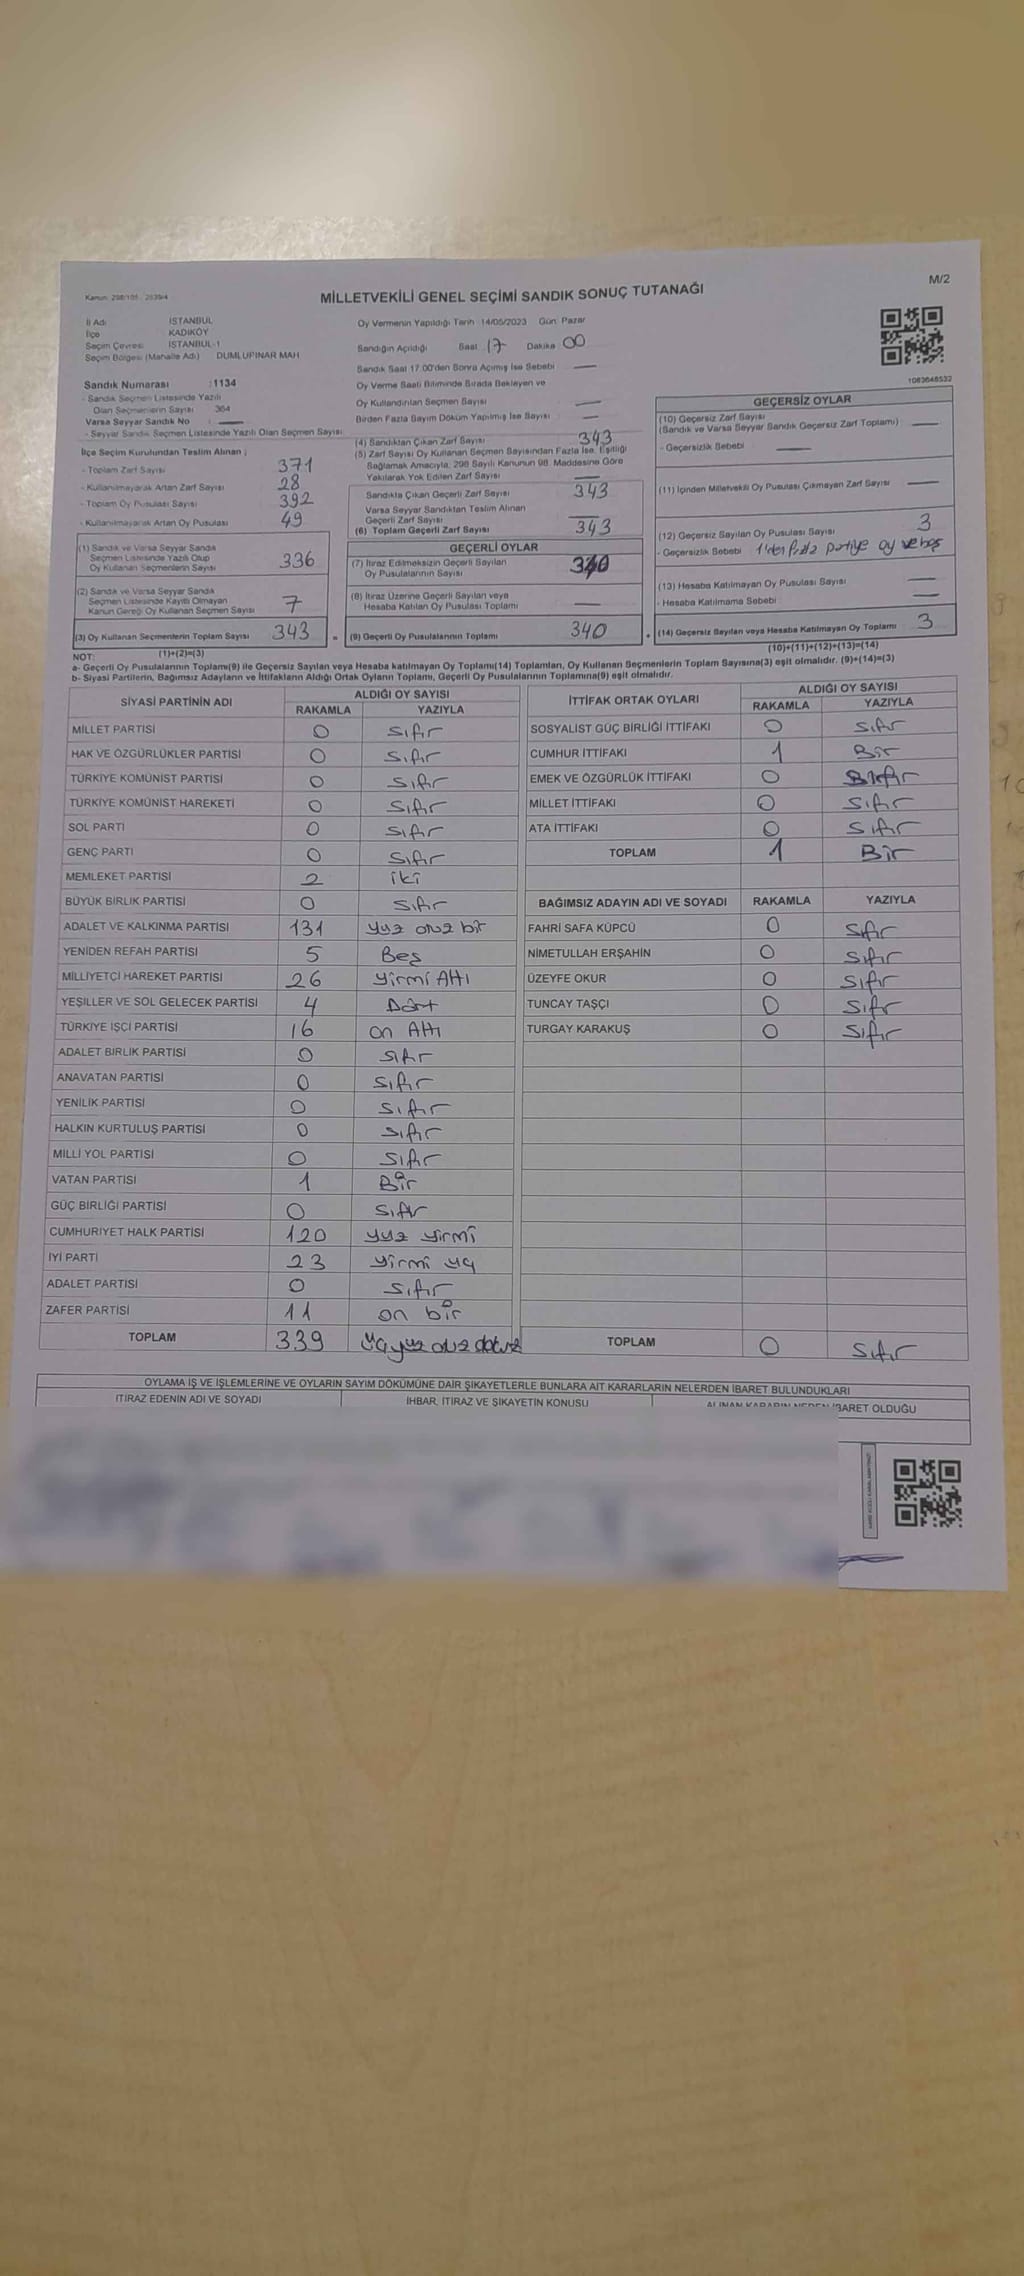 Kanun: 298/105 - 2839/4
MİLLETVEKİLİ GENEL SEÇİMİ SANDIK SONUÇ TUTANAĞI
M/2
İl Adı İSTANBUL
İlçe KADIKÖY
Seçim Çevresi İSTANBUL-1
Seçim Bölgesi (Mahalle Adı) DUMLUPINAR MAH
Sandık Numarası :1134
- Sandık Seçmen Listesinde Yazılı
Olan Seçmenlerin Sayısı 364
Varsa Seyyar Sandık No : —
- Seyyar Sandık Seçmen Listesinde Yazılı Olan Seçmen Sayısı
İlçe Seçim Kurulundan Teslim Alınan ;
- Toplam Zarf Sayısı 371
- Kullanılmayarak Artan Zarf Sayısı 28
- Toplam Oy Pusulası Sayısı 392
- Kullanılmayarak Artan Oy Pusulası 49
(1) Sandık ve Varsa Seyyar Sandık
Seçmen Listesinde Yazılı Olup
Oy Kullanan Seçmenlerin Sayısı 336
(2) Sandık ve Varsa Seyyar Sandık
Seçmen Listesinde Kayıtlı Olmayan
Kanun Gereği Oy Kullanan Seçmen Sayısı 7
(3) Oy Kullanan Seçmenlerin Toplam Sayısı 343
(1)+(2)=(3)
Oy Vermenin Yapıldığı Tarih :14/05/2023 Gün: Pazar
Sandığın Açıldığı Saat :17 Dakika 00
Sandık Saat 17:00'den Sonra Açılmış İse Sebebi —
Oy Verme Saati Bitiminde Sırada Bekleyen ve
Oy Kullandırılan Seçmen Sayısı —
Birden Fazla Sayım Döküm Yapılmış İse Sayısı —
(4) Sandıktan Çıkan Zarf Sayısı 343
(5) Zarf Sayısı Oy Kullanan Seçmen Sayısından Fazla İse, Eşitliği
Sağlamak Amacıyla, 298 Sayılı Kanunun 98. Maddesine Göre
Yakılarak Yok Edilen Zarf Sayısı —
Sandıkta Çıkan Geçerli Zarf Sayısı 343
Varsa Seyyar Sandıktan Teslim Alınan
Geçerli Zarf Sayısı —
(6) Toplam Geçerli Zarf Sayısı 343
GEÇERLİ OYLAR
(7) İtiraz Edilmeksizin Geçerli Sayılan
Oy Pusulalarının Sayısı 340
(8) İtiraz Üzerine Geçerli Sayılan veya
Hesaba Katılan Oy Pusulası Toplamı —
= (9) Geçerli Oy Pusulalarının Toplamı 340
1083648532
GEÇERSİZ OYLAR
(10) Geçersiz Zarf Sayısı
(Sandık ve Varsa Seyyar Sandık Geçersiz Zarf Toplamı) : —
- Geçersizlik Sebebi : —
(11) İçinden Milletvekili Oy Pusulası Çıkmayan Zarf Sayısı —
(12) Geçersiz Sayılan Oy Pusulası Sayısı 3
- Geçersizlik Sebebi 1'den fazla partiye oy vermş
(13) Hesaba Katılmayan Oy Pusulası Sayısı —
- Hesaba Katılmama Sebebi : —
+ (14) Geçersiz Sayılan veya Hesaba Katılmayan Oy Toplamı 3
(10)+(11)+(12)+(13)=(14)
NOT:
a- Geçerli Oy Pusulalarının Toplamı(9) ile Geçersiz Sayılan veya Hesaba katılmayan Oy Toplamı(14) Toplamları, Oy Kullanan Seçmenlerin Toplam Sayısına(3) eşit olmalıdır. (9)+(14)=(3)
b- Siyasi Partilerin, Bağımsız Adayların ve İttifakların Aldığı Ortak Oyların Toplamı, Geçerli Oy Pusulalarının Toplamına(9) eşit olmalıdır.
SİYASİ PARTİNİN ADI ALDIĞI OY SAYISI
RAKAMLA YAZIYLA
MİLLET PARTİSİ 0 sıfır
HAK VE ÖZGÜRLÜKLER PARTİSİ 0 sıfır
TÜRKİYE KOMÜNİST PARTİSİ 0 sıfır
TÜRKİYE KOMÜNİST HAREKETİ 0 sıfır
SOL PARTİ 0 sıfır
GENÇ PARTİ 0 sıfır
MEMLEKET PARTİSİ 2 iki
BÜYÜK BİRLİK PARTİSİ 0 sıfır
ADALET VE KALKINMA PARTİSİ 131 yüz otuz bir
YENİDEN REFAH PARTİSİ 5 Beş
MİLLİYETÇİ HAREKET PARTİSİ 26 yirmi Altı
YEŞİLLER VE SOL GELECEK PARTİSİ 4 Dört
TÜRKİYE İŞÇİ PARTİSİ 16 on Altı
ADALET BİRLİK PARTİSİ 0 sıfır
ANAVATAN PARTİSİ 0 sıfır
YENİLİK PARTİSİ 0 sıfır
HALKIN KURTULUŞ PARTİSİ 0 sıfır
MİLLİ YOL PARTİSİ 0 sıfır
VATAN PARTİSİ 1 Bir
GÜÇ BİRLİĞİ PARTİSİ 0 sıfır
CUMHURİYET HALK PARTİSİ 120 yüz yirmi
İYİ PARTİ 23 yirmi üç
ADALET PARTİSİ 0 sıfır
ZAFER PARTİSİ 11 on bir
TOPLAM 339 üçyüz otuz dokuz
İTTİFAK ORTAK OYLARI ALDIĞI OY SAYISI
RAKAMLA YAZIYLA
SOSYALİST GÜÇ BİRLİĞİ İTTİFAKI 0 sıfır
CUMHUR İTTİFAKI 1 Bir
EMEK VE ÖZGÜRLÜK İTTİFAKI 0 sıfır
MİLLET İTTİFAKI 0 sıfır
ATA İTTİFAKI 0 sıfır
TOPLAM 1 Bir
BAĞIMSIZ ADAYIN ADI VE SOYADI RAKAMLA YAZIYLA
FAHRİ SAFA KÜPCÜ 0 sıfır
NİMETULLAH ERŞAHİN 0 sıfır
ÜZEYFE OKUR 0 sıfır
TUNCAY TAŞÇI 0 sıfır
TURGAY KARAKUŞ 0 sıfır
TOPLAM 0 sıfır
OYLAMA İŞ VE İŞLEMLERİNE VE OYLARIN SAYIM DÖKÜMÜNE DAİR ŞİKAYETLERLE BUNLARA AİT KARARLARIN NELERDEN İBARET BULUNDUKLARI
İTİRAZ EDENİN ADI VE SOYADI İHBAR, İTİRAZ VE ŞİKAYETİN KONUSU ALINAN KARARIN NEDEN İBARET OLDUĞU